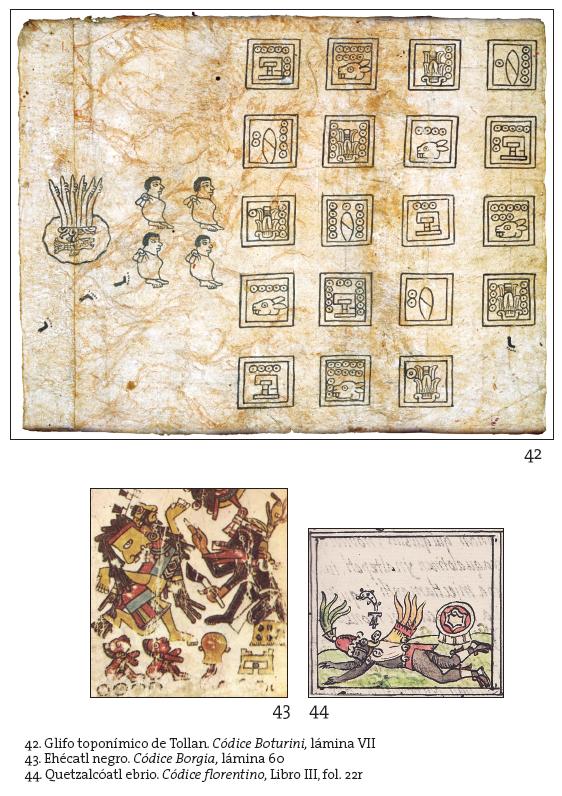 42
43
44
42. Glifo toponímico de Tollan. Códice Boturini, lámina VII
43. Ehécatl negro. Códice Borgia, lámina 60
44. Quetzalcóatl ebrio. Códice florentino, Libro III, fol. 22r